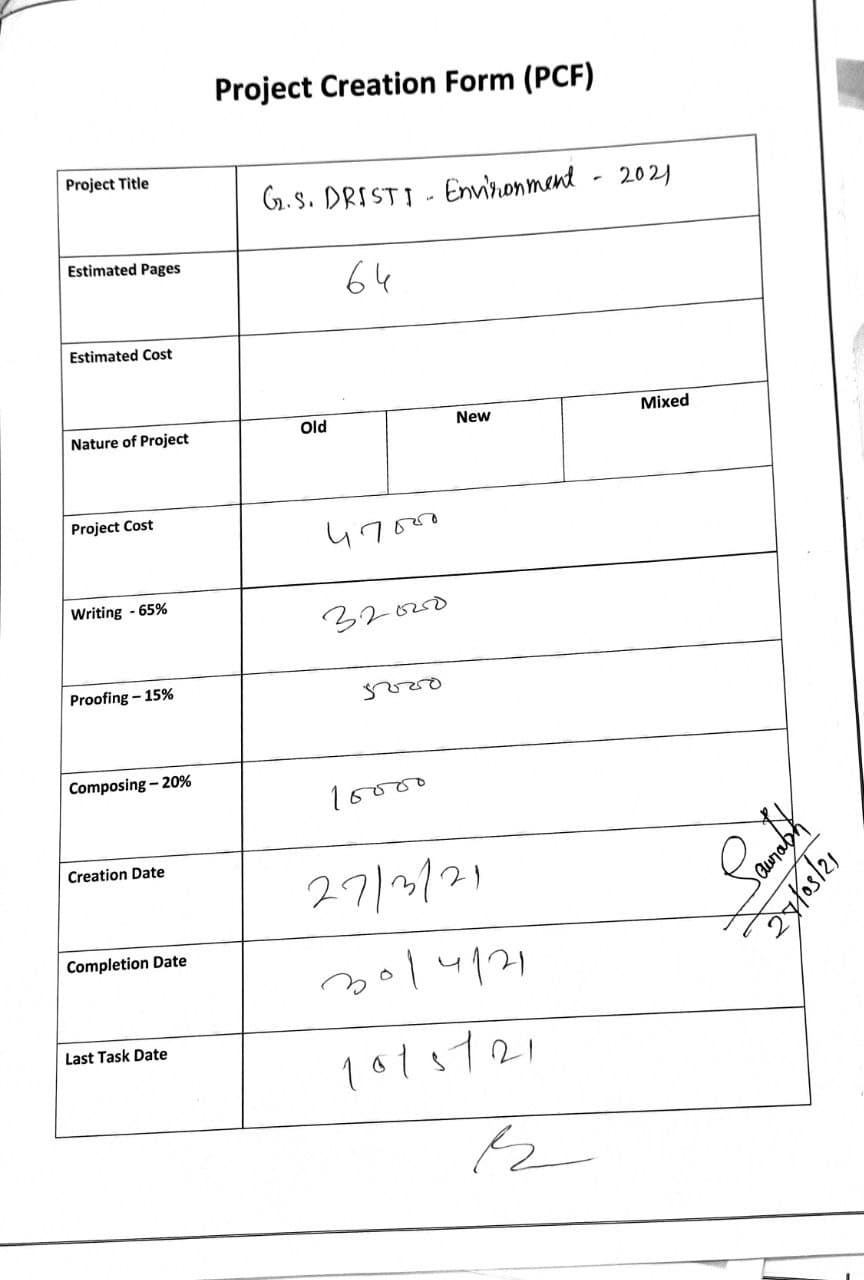 Project Creation Form (PCF)
Project Title
G.S. DRISTI - Environment - 2021
Estimated Pages
64
Estimated Cost
Nature of Project
Old
New
Mixed
Project Cost
47000
Writing - 65%
32000
Proofing – 15%
5000
Composing – 20%
10000
Creation Date
27/3/21
Saurabh
27/03/21
Completion Date
30/4/21
Last Task Date
10/5/21